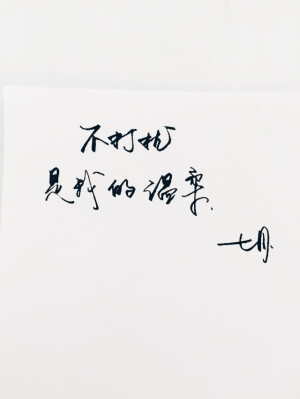 不打扰
是我的温柔.
七月.